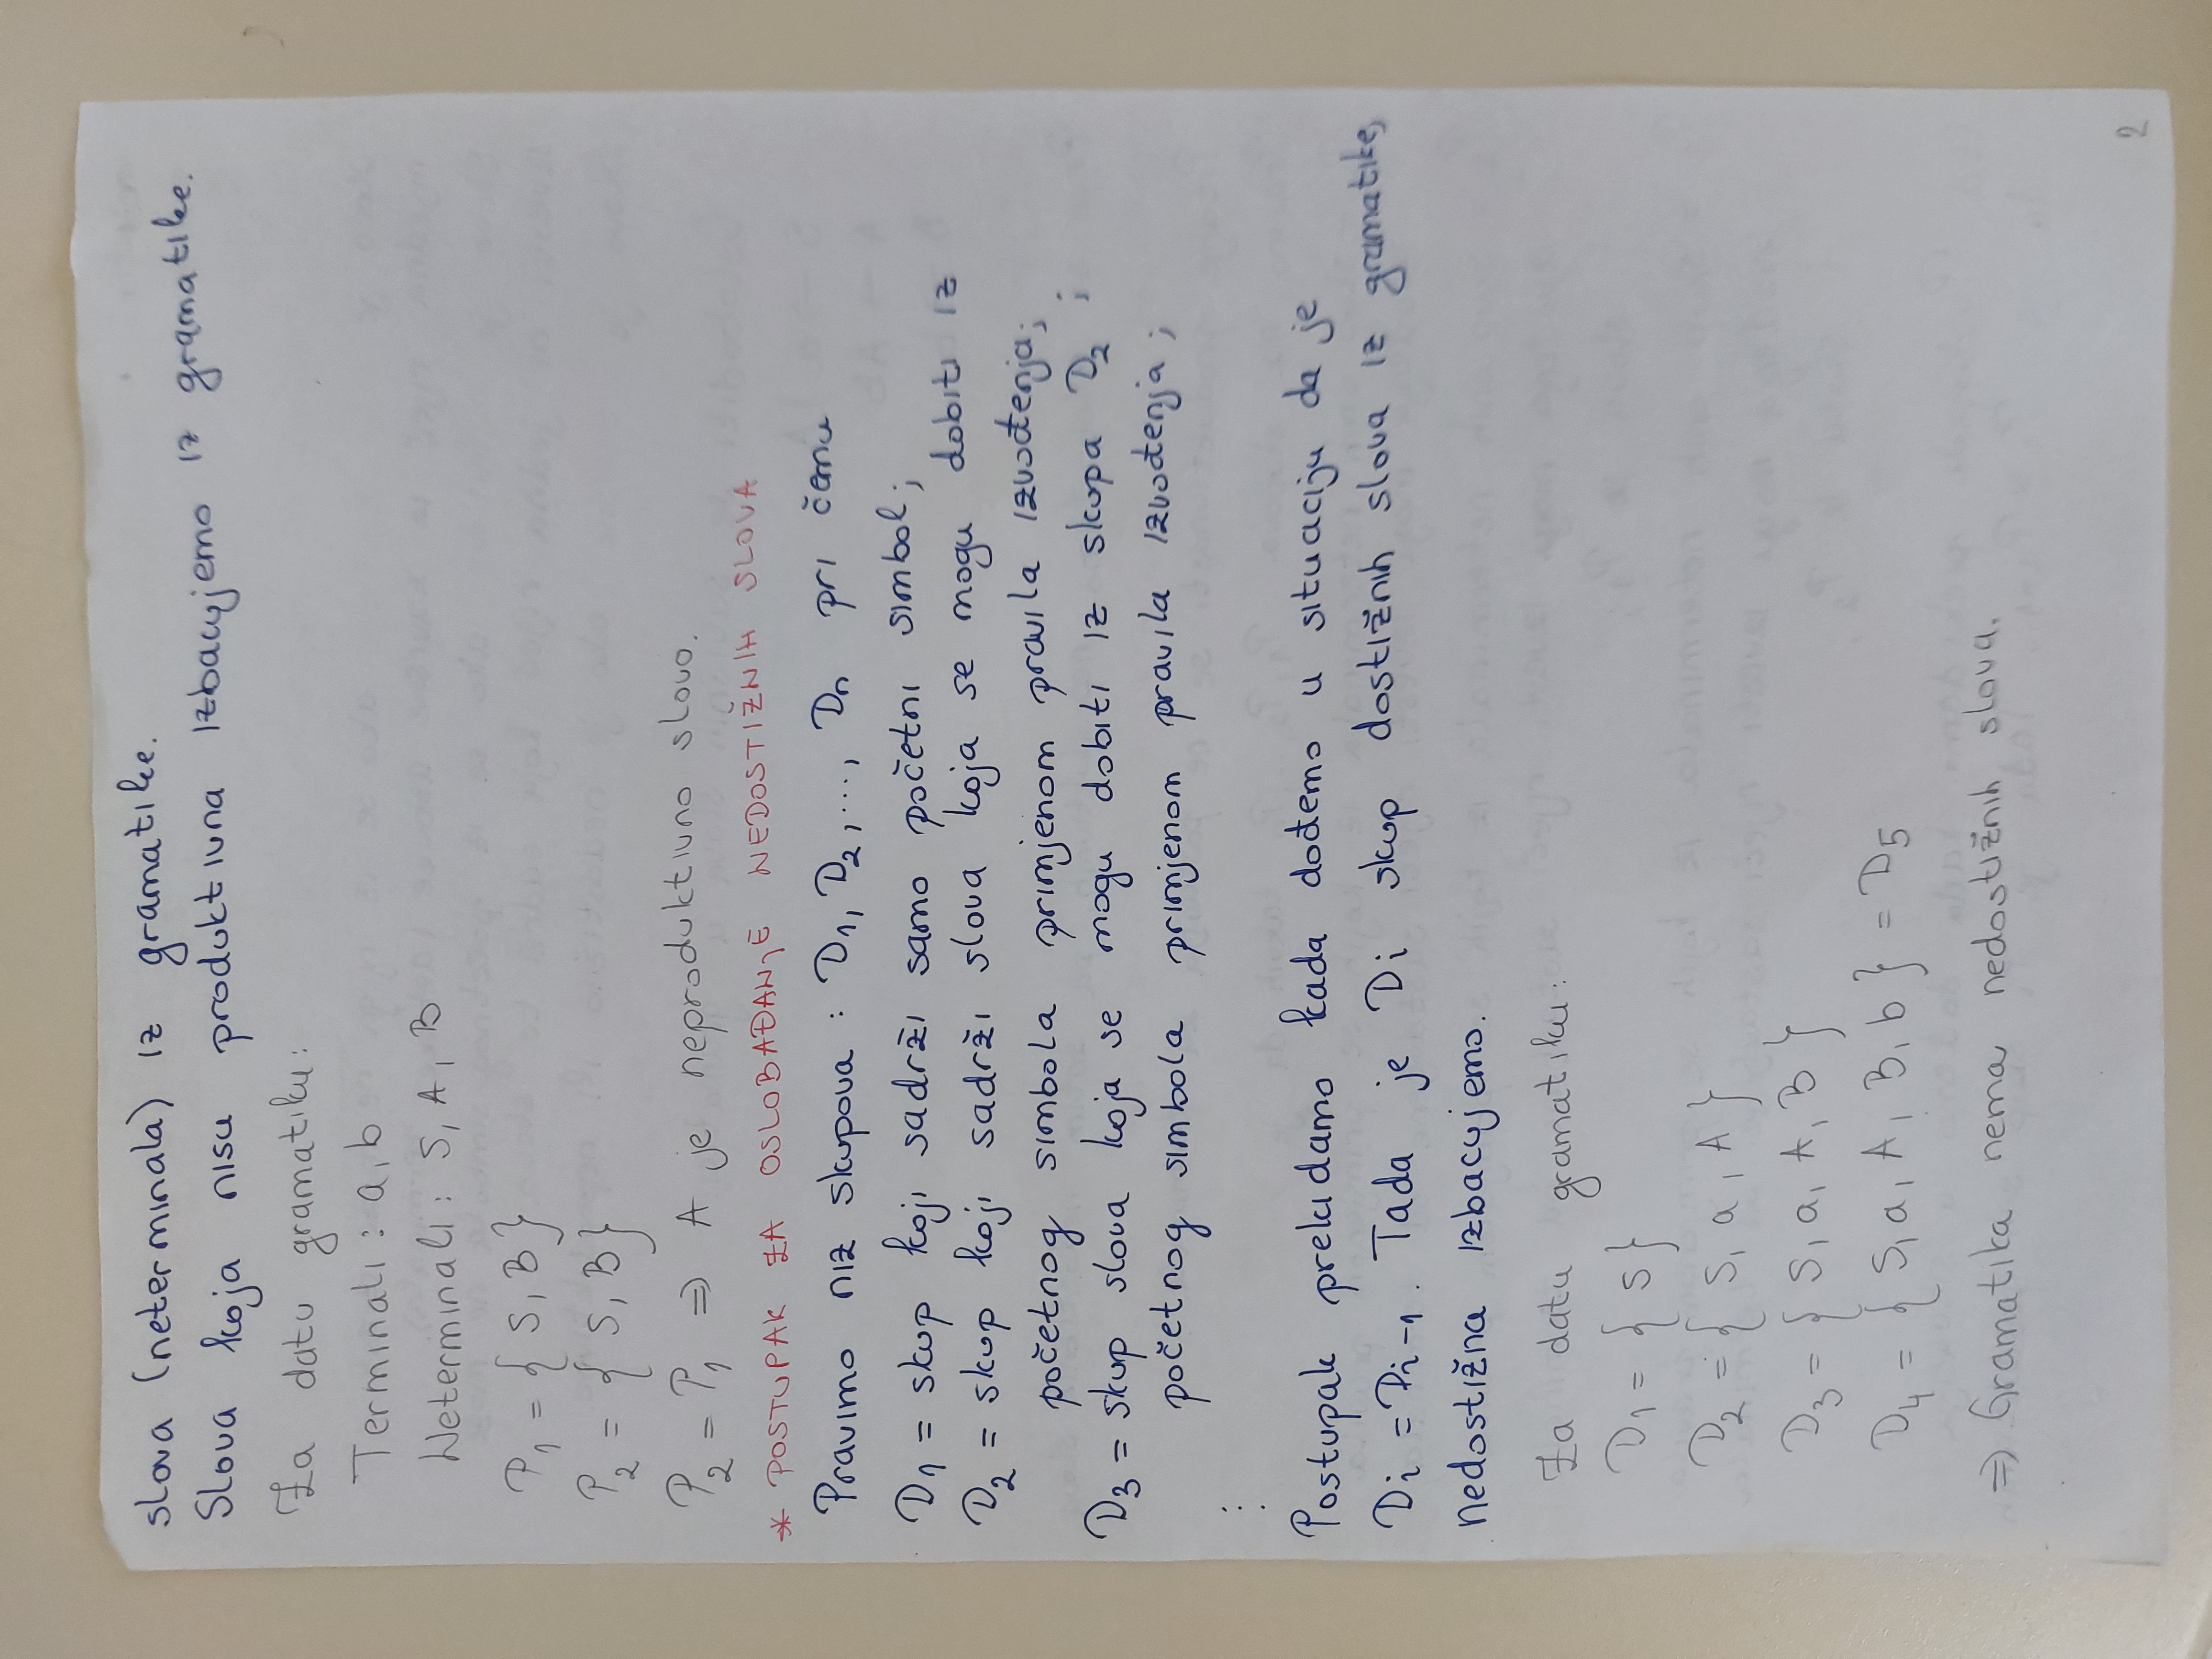 slova (neterminala) iz gramatike.
Slova koja nisu produktivna izbacujemo iz gramatike.
Za datu gramatiku:
Terminali: a, b
Neterminali: S, A, B
P1 = { S, B }
P2 = { S, B }
P2 = P1 ⇒ A je neproduktivno slovo.
* POSTUPAK ZA OSLOBAĐANJE NEDOSTIŽNIH SLOVA
Pravimo niz skupova : D1, D2, ..., Dn pri čemu
D1 = skup koji sadrži samo početni simbol;
D2 = skup koji sadrži slova koja se mogu dobiti iz
početnog simbola primjenom pravila izvođenja;
D3 = skup slova koja se mogu dobiti iz skupa D2 ;
početnog simbola primjenom pravila izvođenja;
⋮
Postupak prekidamo kada dođemo u situaciju da je
Di = Di-1. Tada je Di skup dostižnih slova iz gramatike,
nedostižna izbacujemo.
Za datu gramatiku:
D1 = { S }
D2 = { S, a, A }
D3 = { S, a, A, B }
D4 = { S, a, A, B, b } = D5
⇒ Gramatika nema nedostižnih slova.
2